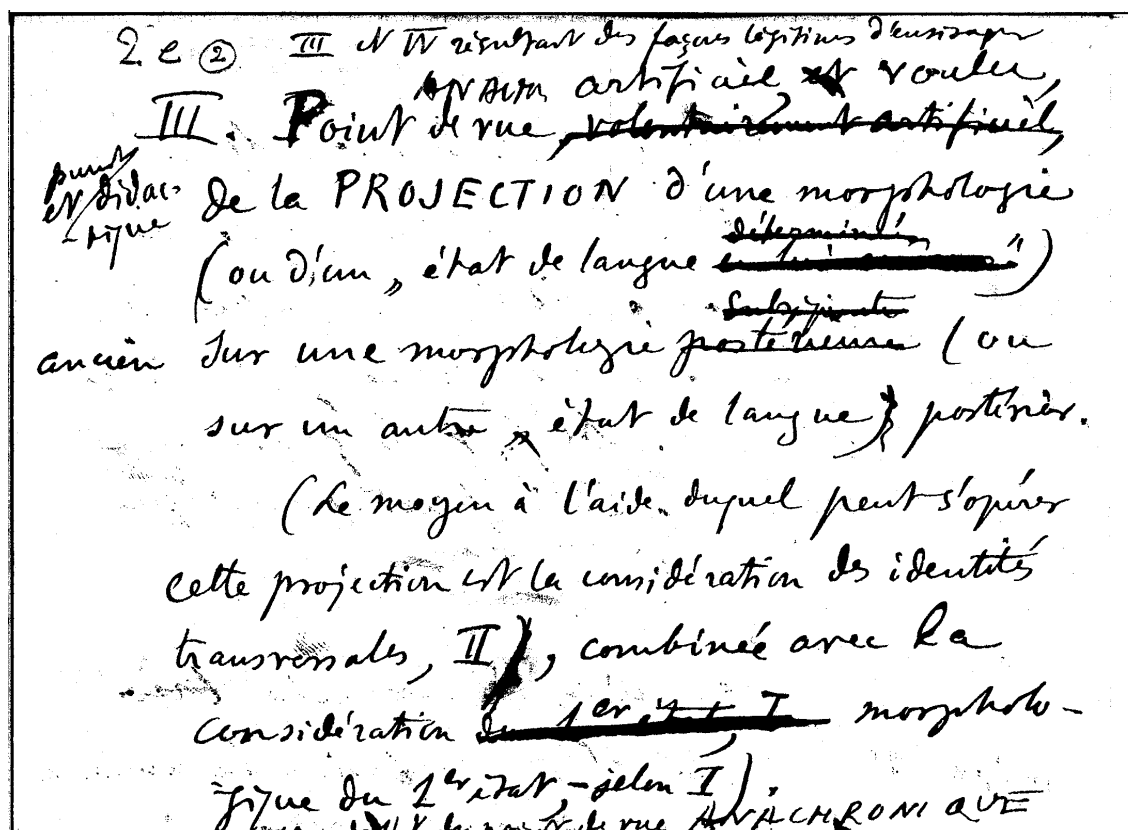 2 e ②  III et IV résultant des façons légitimes d'envisager
artificiel et voulu,
III. Point de vue, volontairement artificiel,
purot
et didac-
-tique
de la PROJECTION d'une morphologie
déterminée
(ou d'un „ état de langue ")
subséquente
ancien sur une morphologie postérieure (ou
sur un autre „ état de langue) postérieur.
(Le moyen à l'aide duquel peut s'opérer
cette projection est la considération des identités
transversales, II), combinée avec la
considération du 1er état, I morpholo-
gique du 1er état, – selon I).
point de vue ANACHRONIQUE